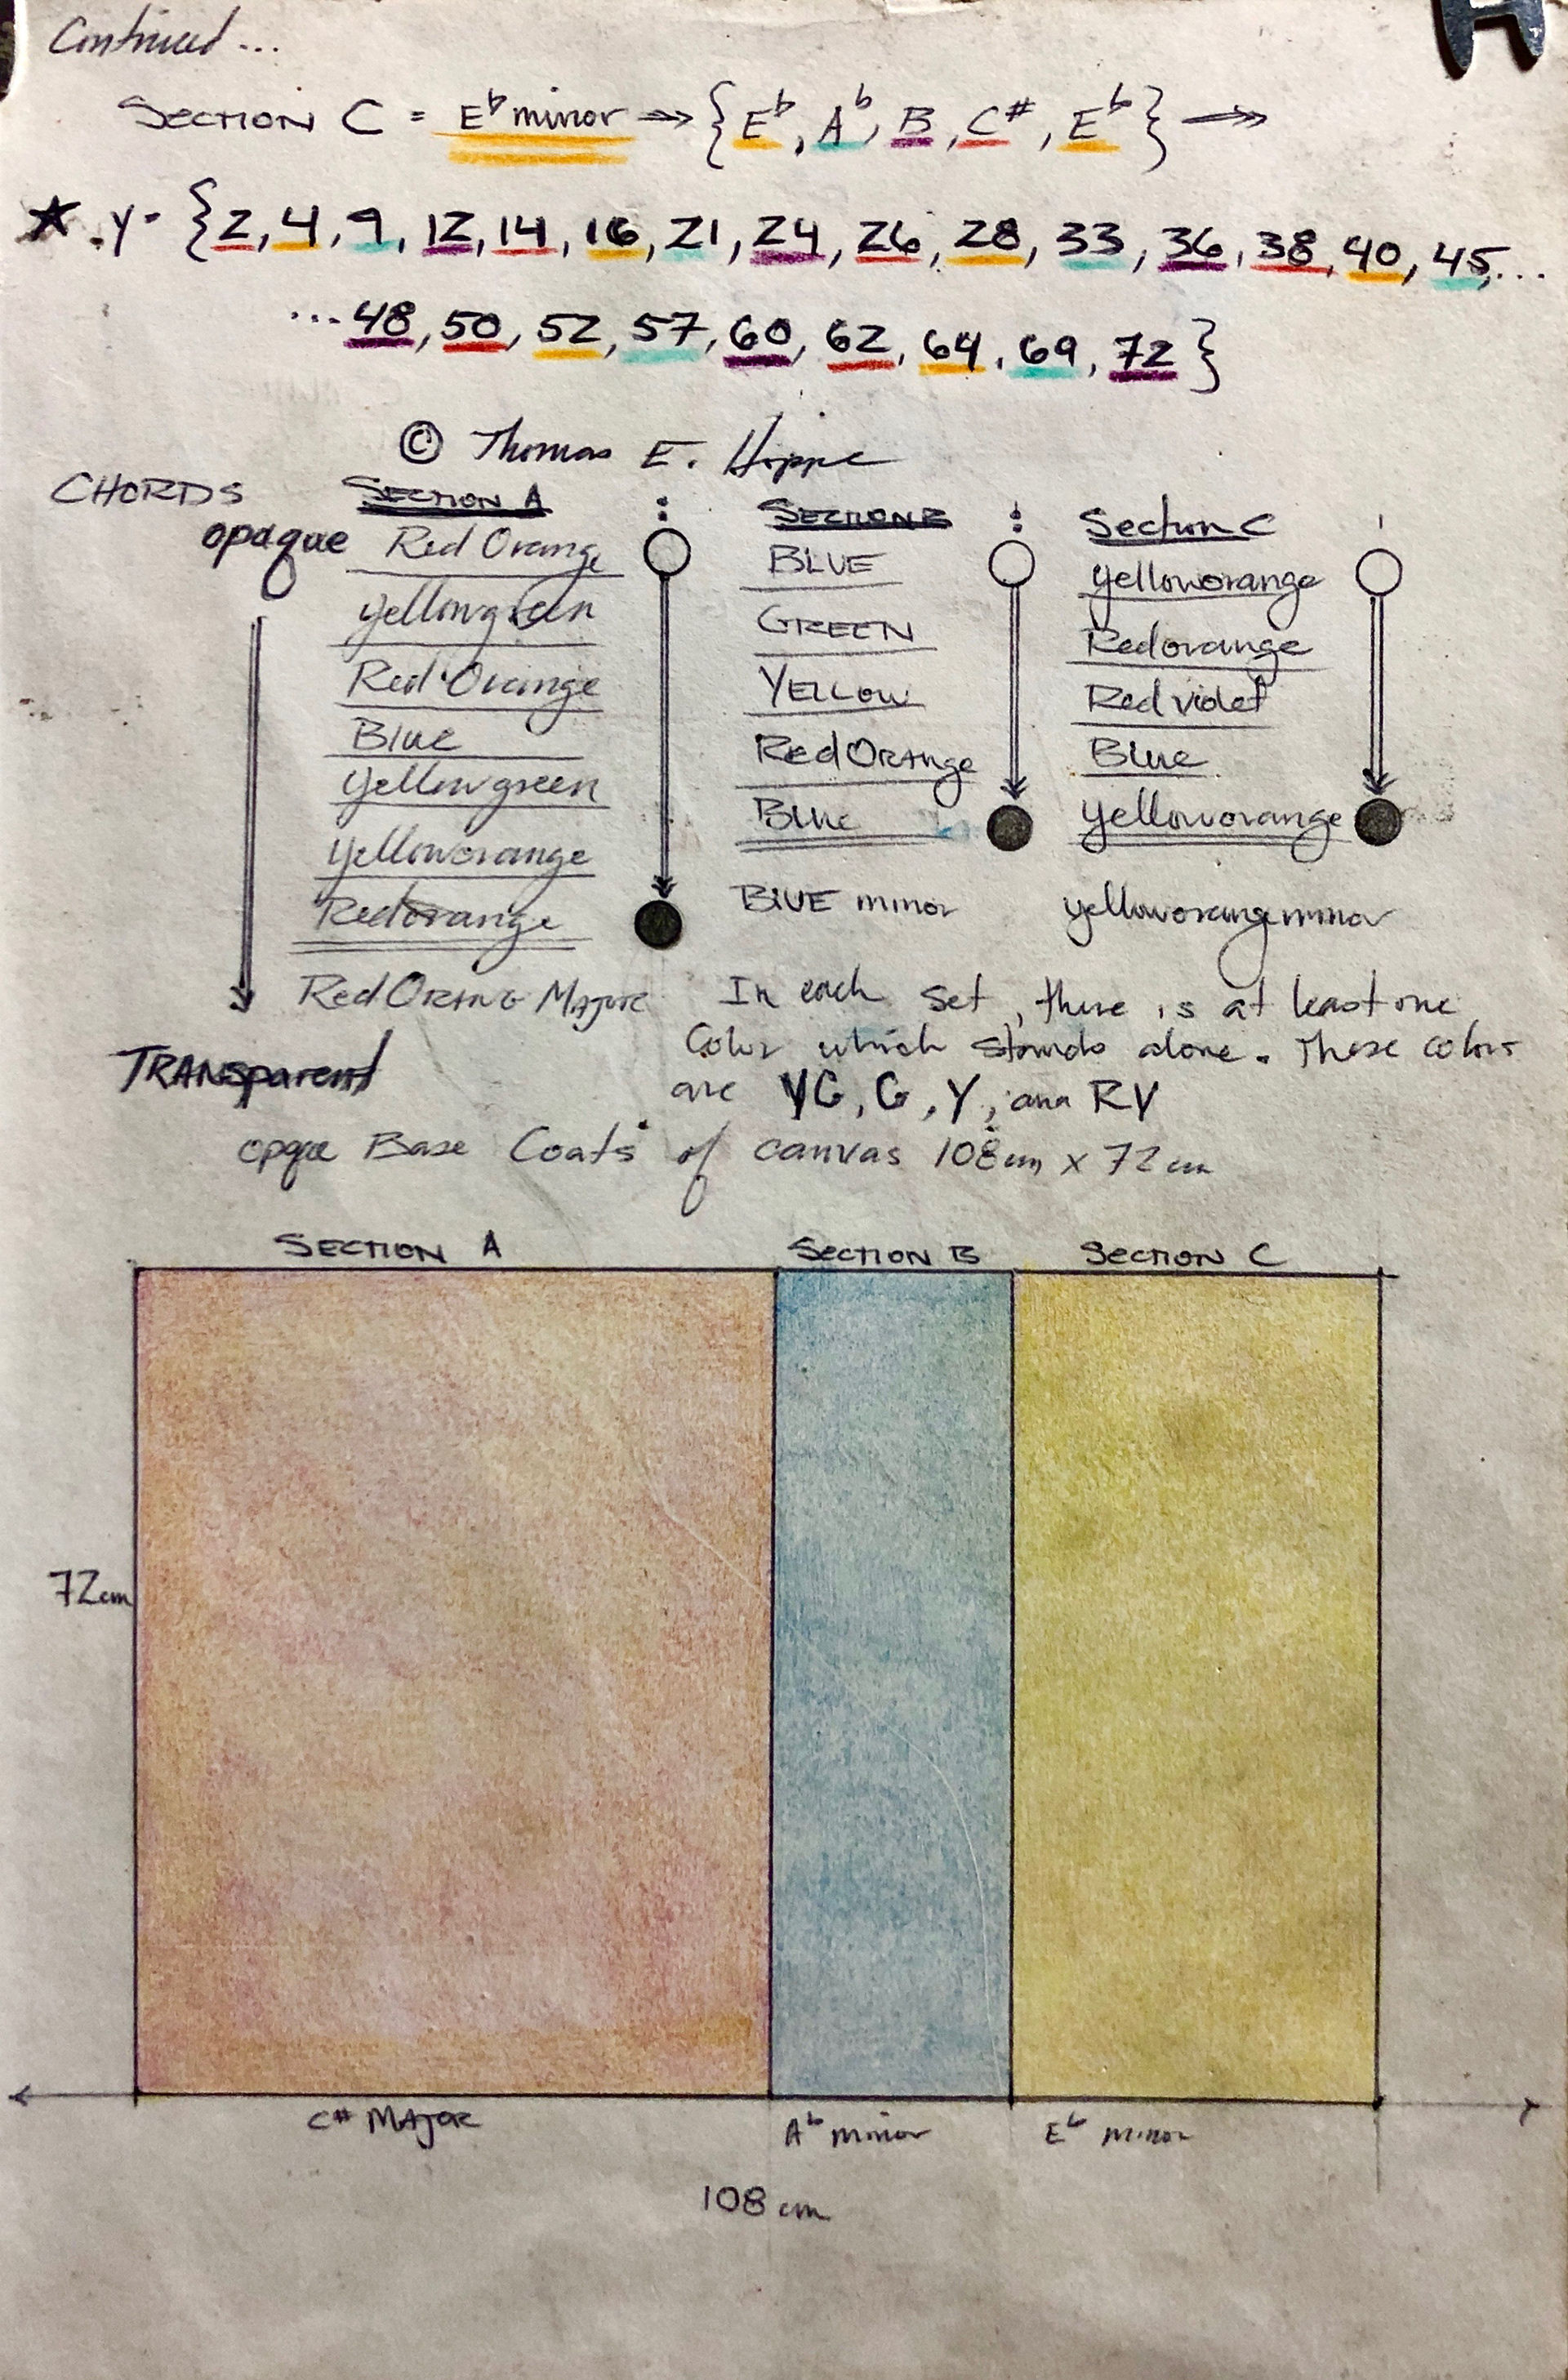 Continued...
SECTION C = E♭ minor →> {E♭, A♭, B, C#, E♭} →>
★ .y = {2, 4, 9, 12, 14, 16, 21, 24, 26, 28, 33, 36, 38, 40, 45,...
...48, 50, 52, 57, 60, 62, 64, 69, 72}
© Thomas E. Hoppe
CHORDS
opaque
SECTION A :
Red Orange
yellowgreen
Red Orange
Blue
Yellowgreen
yelloworange
Redorange
Red Orang Major
TRANSparent
SECTION B :
BLUE
GREEN
YELLOW
Red Orange
Blue
BLUE minor
Section C
yelloworange
Redorange
Red violet
Blue
yelloworange
yelloworangeminor
In each set, there is at least one
Color which stands alone. These colors
are YG, G, Y, and RV
opqe Base Coats of canvas 108cm x 72cm
SECTION A SECTION B SECTION C
72cm
C# MAJOR A♭ minor E♭ minor
108 cm